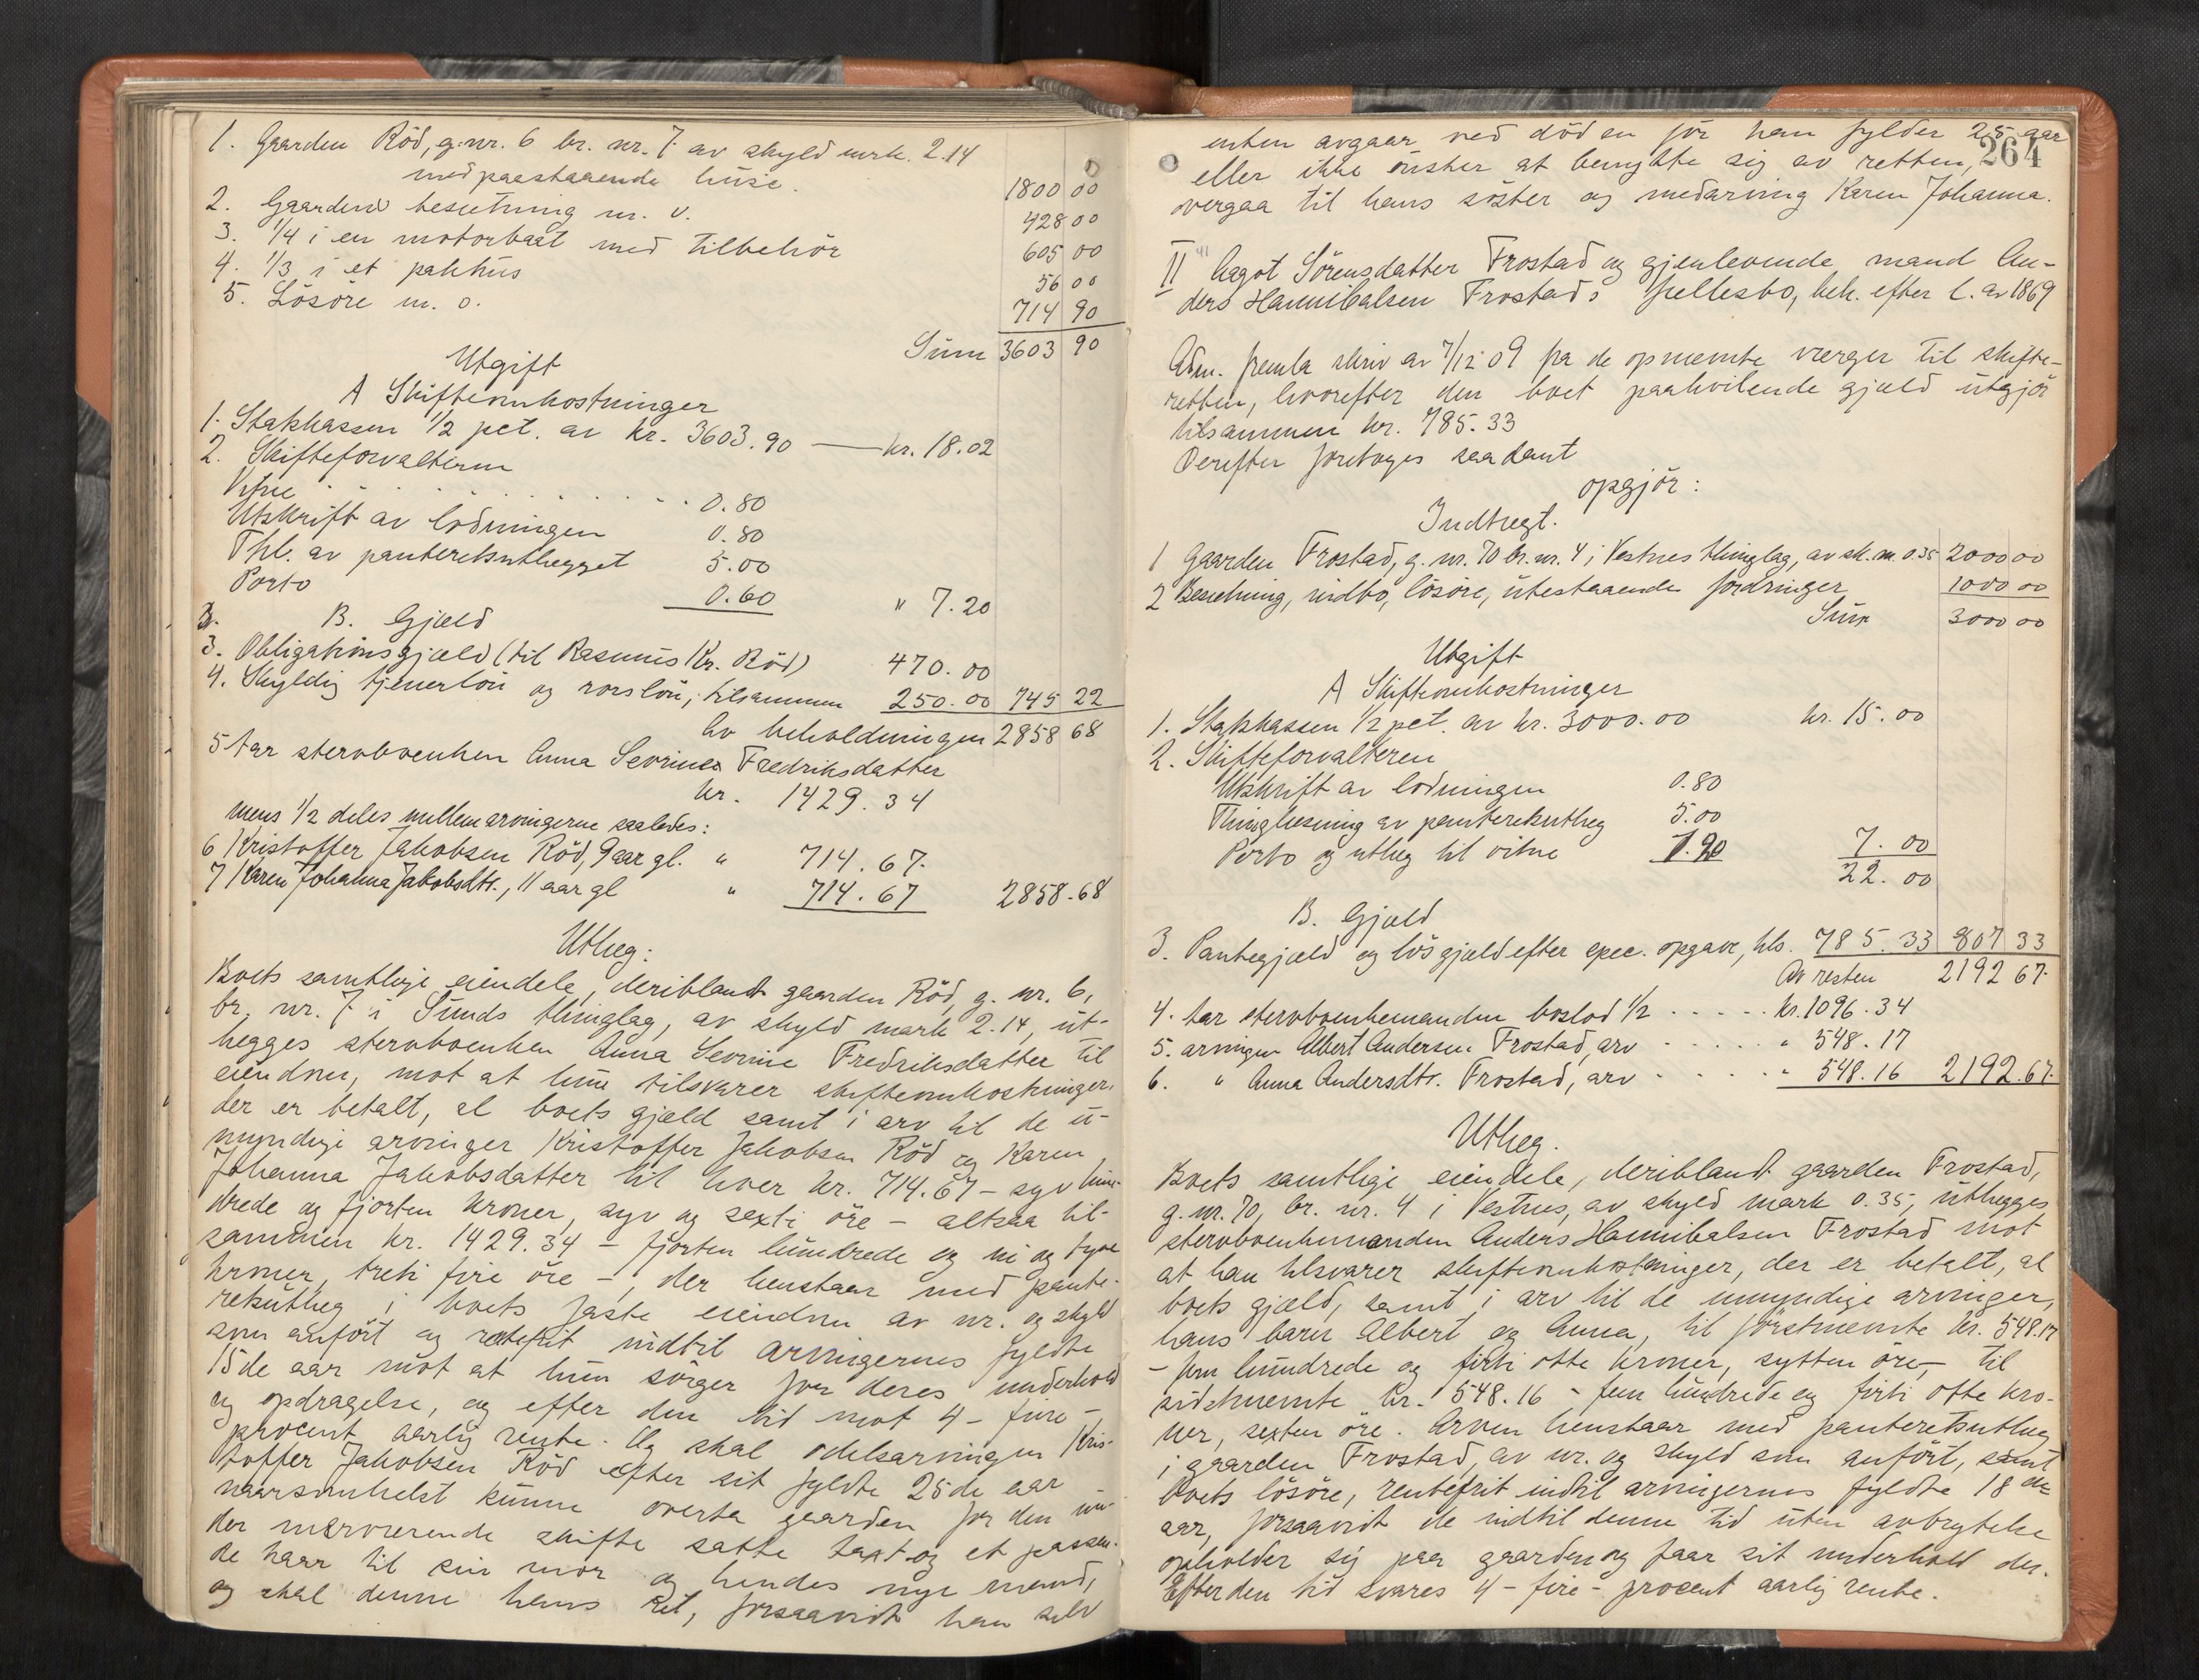 1. Gaarden Röd, g.nr. 6 br. nr. 7 av skyld mrk. 2.14
med paastaaende huse. 1800 00
2. Gaardens besetning m. v. 428 00
3. 1/4 i en motorbaat med tilbehör 605 00
4. 1/3 i et pakhus 56 00
5. Lösöre m. v. 714 90
Sum 3603 90
Utgift
A Skifteomkostninger
1. Statskassen 1/2 pct. av kr. 3603.90 — kr. 18.02
2. Skifteforvalteren
Vitne 0.80
Utskrift av lodningen 0.80
Thl. av panteretsutlegget 5.00
Porto 0.60 " 7.20
B. Gjæld
3. Obligationsgjæld (til Rasmus Kr. Röd) 470.00
4. Skyldig tjenerlön og rorslön, tilsammen 250.00 745 22
Av beholdningen 2858 68
5 tar stervboenken Anna Sevrine Fredriksdatter
kr. 1429.34
mens 1/2 deles mellem arvingerne saaledes:
6 Kristoffer Jakobsen Röd, 9 aar gl. " 714.67.
7 Karen Johanna Jakobsdtr., 11 aar gl " 714.67 2858.68
Utlæg:
Boets samtlige eiendele, deriblandt gaarden Röd, g. nr. 6,
br. nr. 7 i Sunds thinglag, av skyld mark 2.14, ut-
lægges stervboenken Anna Sevrine Fredriksdatter til
eiendom, mot at hun tilsvarer skifteomkostninger,
der er betalt, al boets gjæld samt i arv til de u-
myndige arvinger Kristoffer Jakobsen Röd og Karen
Johanna Jakobsdatter til hver kr. 714.67 – syv hun-
drede og fjorten kroner, syv og sexti öre – altsaa til-
sammen kr. 1429.34 – fjorten hundrede og ni og tyve
kroner, treti fire öre –, der henstaar med pante-
retsutlæg i boets faste eiendom av nr. og skyld
som anfört og rentefrit indtil arvingernes fyldte
15de aar mot at hun sörger for deres underhold
og opdragelse, og efter den tid mot 4 – fire –
procent aarlig rente. Og skal odelsarvingen Kris-
toffer Jakobsen Röd efter sit fyldte 25de aar
naarsomhelst kunne overta gaarden for den un-
der nærværende skifte satte taxt og et passen-
de kaar til sin mor og hendes nye mand,
og skal denne hans ret, forsaavidt han selv
264
enten avgaar ved döden för han fylder 25 aar
eller ikke önsker at benytte sig av retten,
overgaa til hans söster og medarving Karen Johanna.
II Aagot Sörensdatter Frostad og gjenlevende mand An-
ders Hannibalsen Frostads fællesbo, beh. efter l. av 1869
Adm. fremla skriv av 7/12 09 fra de opnævnte værger til skifte-
retten, hvorefter den boet paahvilende gjæld utgjör
tilsammen kr. 785.33
Derefter foretoges saadant
opgjör:
Indtægt.
1 Gaarden Frostad, g. nr. 70 br. nr. 4 i Vestnes thinglag, av sk. m. 0.35 2000 00
2 Besetning, indbo, lösöre, utestaaende fordringer 1000 00
Sum 3000 00
Utgift
A Skifteomkostninger
1. Statskassen 1/2 pct. av kr. 3000.00 kr. 15.00
2. Skifteforvalteren
Utskrift av lodningen 0.80
Thinglæsning av panteretsutlæg 5.00
Porto og utlæg til vitne 1.20 7.00
22.00
B. Gjæld
3. Pantegjæld og lös gjæld efter spec. opgave, tils. 785.33 807 33
Av resten 2192 67.
4. tar stervboenkemanden boslod 1/2 kr. 1096.34
5. arvingen Albert Andersen Frostad, arv " 548.17
6. " Anna Andersdtr. Frostad, arv " 548.16 2192.67.
Utlæg.
Boets samtlige eiendele, deriblandt gaarden Frostad,
g. nr. 70, br. nr. 4 i Vestnes, av skyld mark 0.35, utlægges
stervboenkemanden Anders Hannibalsen Frostad mot
at han tilsvarer skifteomkostninger, der er betalt, al
boets gjæld, samt i arv til de umyndige arvinger,
hans barn Albert og Anna, til förstnevnte kr. 548.17
– fem hundrede og firti otte kroner, sytten öre, – til
sidstnevnte kr. 548.16 – fem hundrede og firti otte kro-
ner, sexten öre. Arven henstaar med panteretsutlæg
i gaarden Frostad, av nr. og skyld som anfört, samt
boets lösöre, rentefrit indtil arvingernes fyldte 18 de
aar, forsaavidt de indtil denne tid uten avbrytelse
opholder sig paa gaarden og faar sit underhold der.
Efter den tid svares 4 – fire – procent aarlig rente.